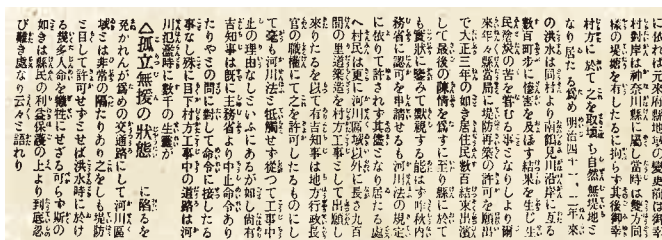 に依れば元來府縣地域の變更前は御幸
村方對岸は神奈川縣に屬し當時は雙方同
樣の堤塘を有したるに拘らず其後御幸
村方に於て之を取壊ち自然無堤地と
なり居たる爲め明治四十一、二年來
の洪水は同村より南鶴見川沿岸に亙る
數百町歩に慘害を及ぼす結果を生じ生
民塗炭の苦を嘗むる事となりしより爾
來年々縣當局に堤防再築の許可を願出
で大正三年の如き居住民數百結束出濱
して最後の陳情を爲すに至り縣に於て
も實狀に鑒みて默視する能はず昨秋内
務省に認可を申請せるも河川法の規定
に依りて許されず其儘となり居たる處
へ村民は更に河川區域以外に長さ九百
間の里道築造を村方工事として出願し
來りたるを以て有吉知事は地方行政長
官の職權にて之を許可したるものにし
て毫も河川法と牴觸せず從つて工事中
止の理由なしといふにあるが如し尚有
吉知事は既に主務省より中止命令あり
たりやとの問に對し命令に接したる
事なし殊に目下村方工事中の道路は河
川氾濫に數千の生靈が
△孤立無援の狀態 に陷るを
免かれんが爲めの交通路にして河川區
域とは非常の隔たりあり之をしも堤防
と目して許可せずとせば洪水時に於け
る幾多人命を犧牲にせざる可らず斯の
如きは縣民の利益保護の上より到底認
び難き處なり云々と語れり